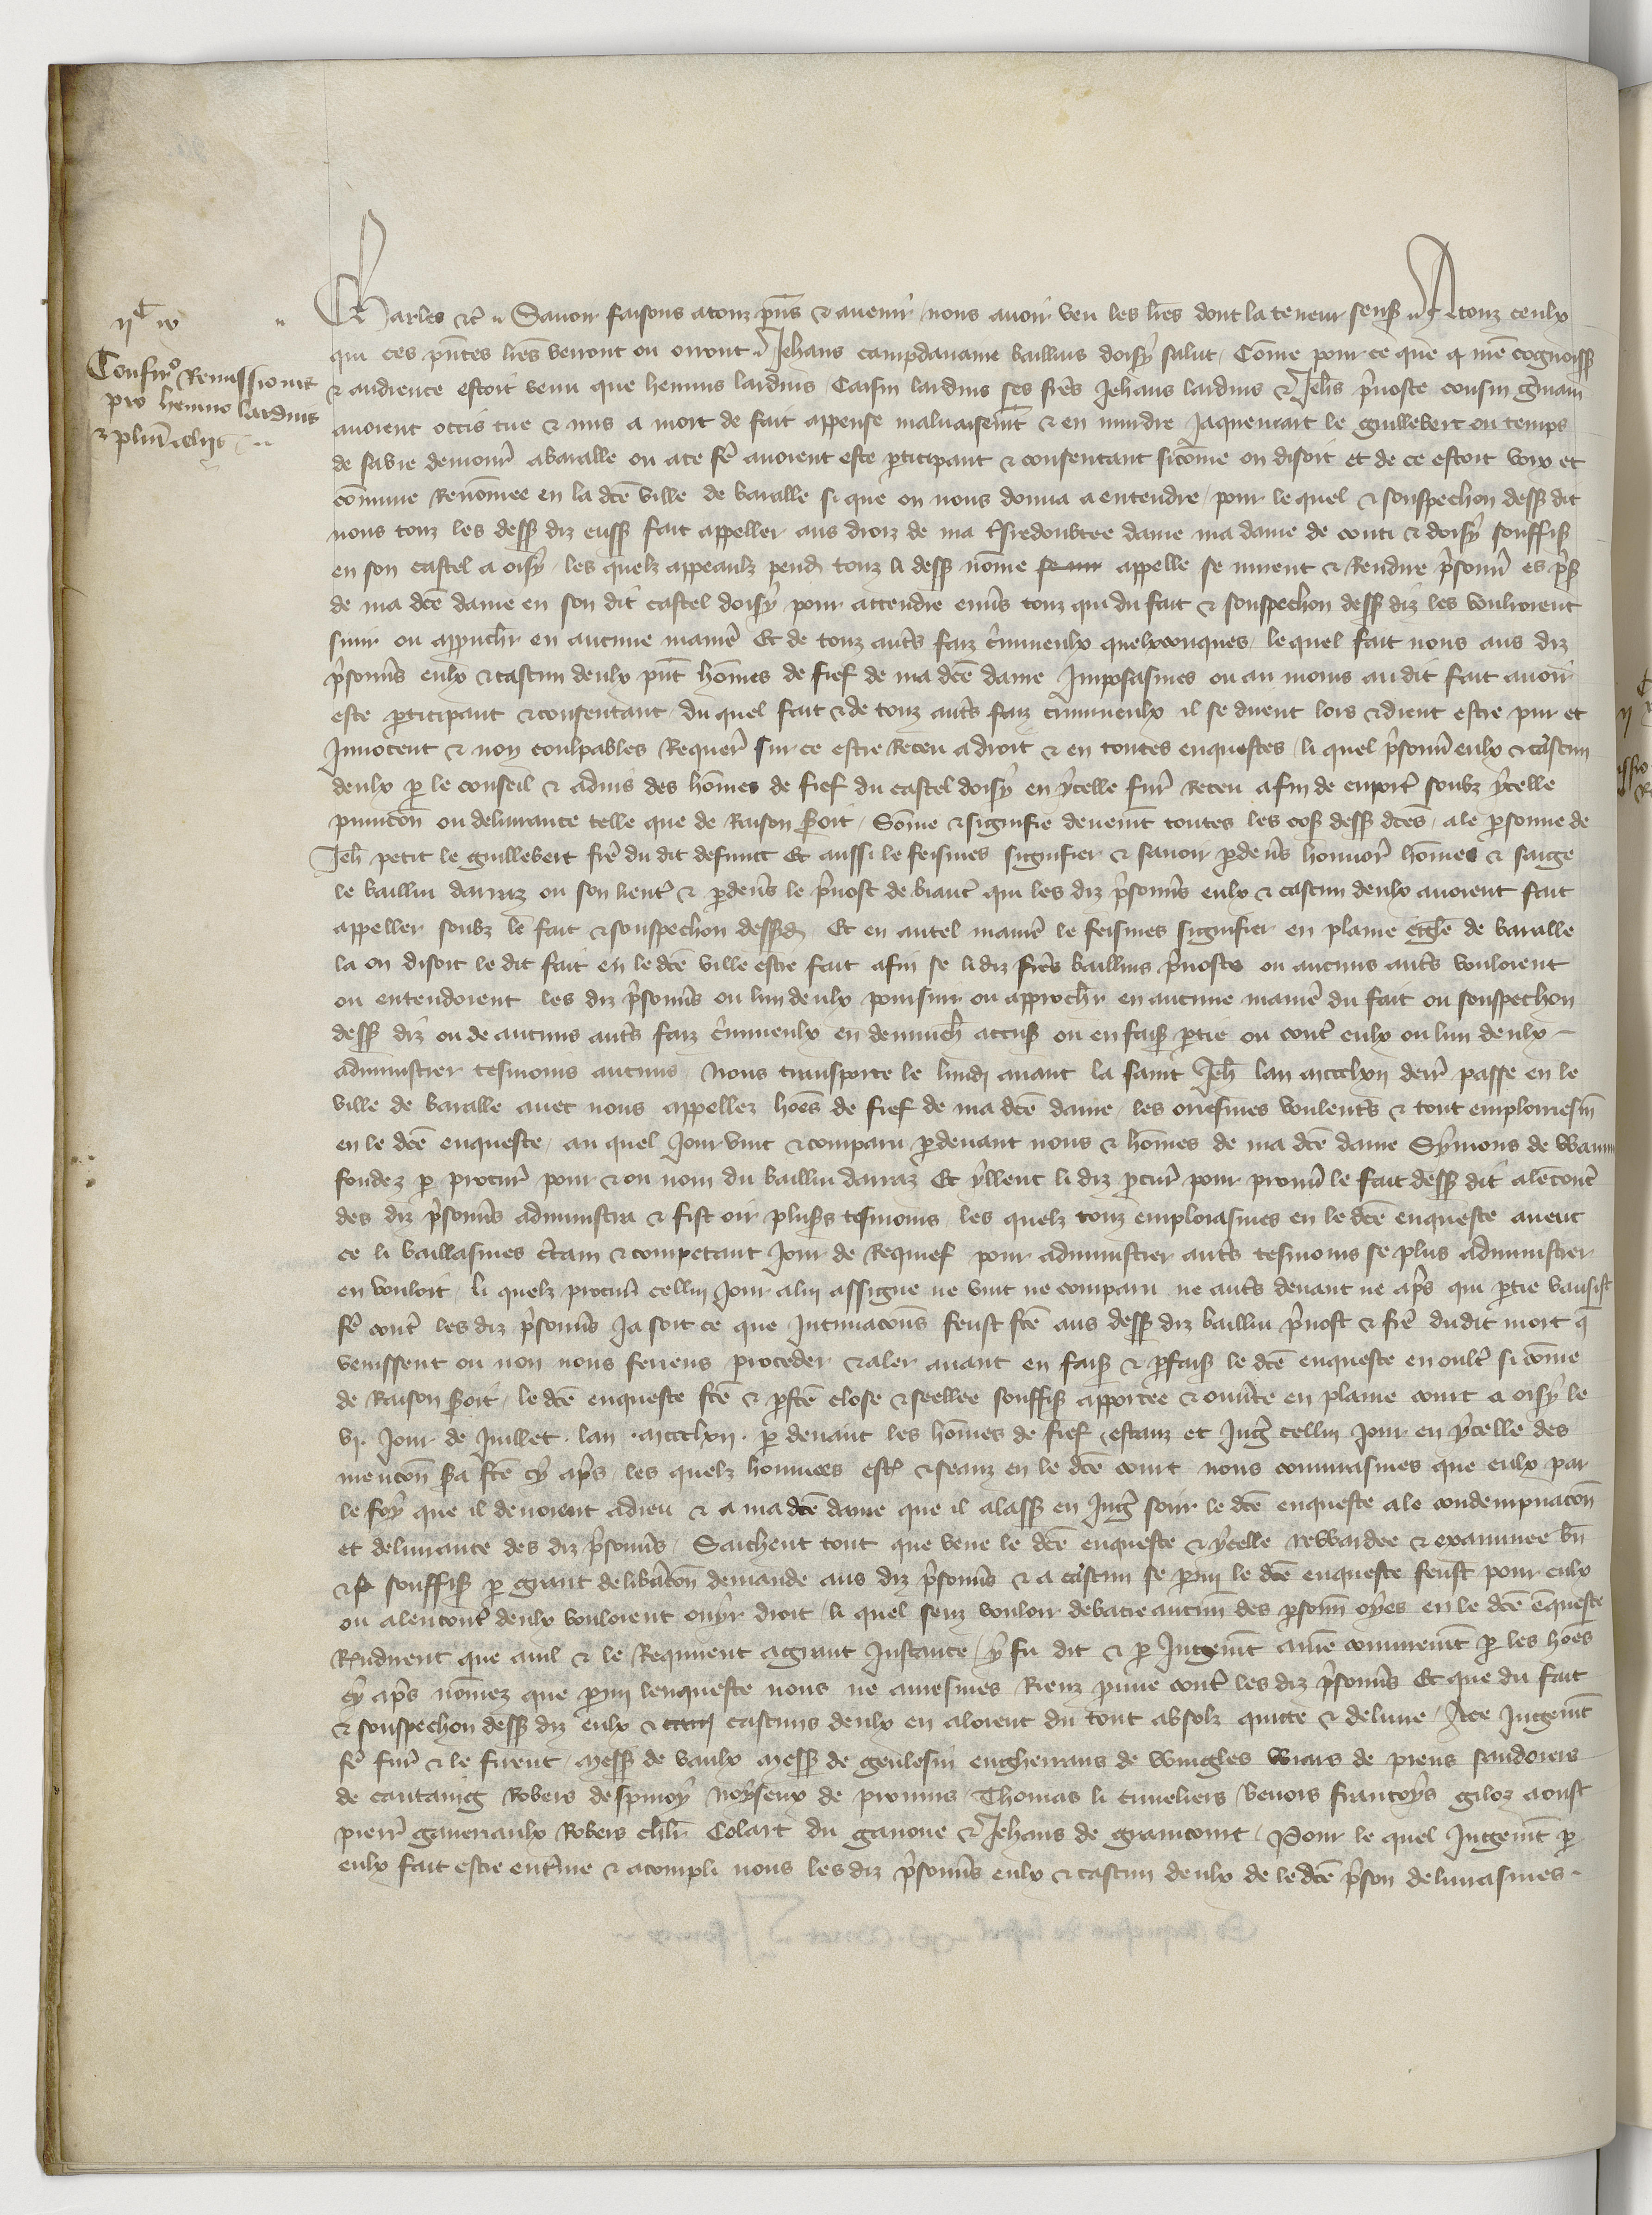 iiᶜ iv
Confir͛o Remissionis
pro hennino lardins
& plurī. aliis
Charles &c̄. Savoir faisons a touz p̄ns & avenir / nous avoir veu les lr̄es dont la teneur sensuit. A touz ceulx
qui ces p̄ntes lr̄es verront ou orront. Jehans campdavaine baillius doisÿ salut / Cōme pour ce que a mē cognoiss̄
& audience estoit venu que hennins lardins / Caisin lardins ses fr̄es Jehans lardins & Jeh̄s p̄voste cousin gm̄ain
avoient occis tue & mis a mort de fait appense malvaisem̄t & en murdre Jaquemart le guillebert ou temps
de sa vie demour̄ a baralle ou a ce fē avoient este p̄ticipant & consentant sicōme on disoit et de ce estoit voix et
cōmune Renōmee en la dcē ville de baralle si que on nous donna a entendre / pour le quel & souspechon dess̄ dit
nous touz les dess̄ diz euss̄ fait appeller aus droiz de ma tresredoubtee dame ma dame de conti & doisÿ souffis̄
en son castel a oisÿ / les quelz appeaulz pend̄ touz li dess̄ nōme appelle se mirent & Rendirē p̄sonn̄ es p̄s̄
de ma dcē dame en son dit castel doisÿ pour attendre env̄s touz qui du fait & souspechon dess̄ diz les vouloient
suir ou approch̄r en aucune manīe Et de touz aut̄s faiz c̄imineulx quelxconques / le quel fait nous aus diz
p̄sonn̄s eulx & cascun deulx p̄nt hōmes de fief de ma dcē dame Imposasmes ou au moins au dit fait avoir
este p̄ticipant & consentant / du quel fait & de touz aut̄s faiz c̄imineulx il se dirent lors & dient estre pur et
Innocent & non coulpables Requer̄ sur ce estre Receu a droit & en toutes enquestes / li quel p̄sonn̄ eulx & cascun
deulx p̄ le conseil & advis des hōmes de fief du castel doisÿ en ÿcelle fur̄ Receu afin de enport̄ soubz ÿcelle
punicōn ou delivrance telle que de Raison s̄oit / Sōme & signifie deuem̄t toutes les cos̄ dess̄ dcēs / a le p̄sonne de
Jeh̄ petit le guillebert frē du dit defunct Et aussi le feismes signifier & savoir p̄ dev̄s honnor̄ hōmes & saige
le bailliu darraz ou son lieut̄ & p̄ dev̄s le p̄vost de biauḿ qui les diz p̄sonn̄s eulx & cascun deulx avoient fait
appeller soubz le fait & souspechon dess̄d̄ / Et en autel manīe le feismes signifier en plaine eiglē de baralle
la on disoit le dit fait en le dcē ville estre fait afin se li diz fr̄es baillius p̄vostes ou aucuns aut̄s vouloient
ou entendoient les diz p̄sonn̄s ou lun deulx poursuir ou approch̄r en aucune manīe du fait ou souspechon
dess̄ diz ou de aucuns aut̄s faiz c̄imineulx en denunch̄ accus̄ ou en fais̄ p̄tie ou cont̄ eulx ou lun deulx
administrer tesmoins aucuns / Nous transporte le lundi avant la saint Jeh̄ lan mccclxii derr̄ passe en le
ville de baralle avec nous appellez hōes de fief de ma dcē dame / les oiesmes voulent̄s & tout emploiesm̄
en le dcē enqueste / au quel Jour vint & comparu p̄devant nous & hōmes de ma dcē dame Sÿmons de
fondez p̄ procur̄ pour & ou nom du bailliu darraz Et ÿllenc li diz p̄cur̄ pour prouv̄ le fait dess̄ dit a lēcont̄
des diz p̄sonn̄s administra & fist oir plus̄s tesmoins / les quelz touz emploiasmes en le dcē enqueste avenc
ce li baillasmes c̄tain & competant Jour de Requief pour administrer aut̄s tesmoins se plus administrer
en vouloit / li quelz procur̄ cellui Jour a lui assigne ne vint ne comparu ne aut̄s devant ne ap̄s qui p̄tie vausist
fē cont̄ les diz p̄sonn̄s Ja soit ce que Intimacōns feust fcē aus dess̄ diz bailliu p̄vost & frē du dit mort q̄
venissent ou non nous feriens proceder & aler avant en fais̄ & p̄fais̄ le dcē enqueste en oult̄ si cōme
de Raison s̄oit / le dcē enqueste fcē & p̄fcē close & seellee souffis̄ apportee & ouv̄te en plaine court a oisÿ le
vi. Jour de Juillet . lan . mccclxii . p̄ devant les hōmes de fief estanz et Juḡ cellui Jour en ÿcelle des
mencōn s̄a fcē cÿ ap̄s / les quelz hommes est̄ & seanz en le dcē court nous conjurasmes que eulx par
le foÿ que il devoient a dieu & a ma dcē dame que il alass̄ en Juḡ sour le dcē enqueste a le condempnacōn
et delivrance des diz p̄sonn̄s / Saichent tout que veue le dcē enqueste & ÿcelle rewardee & examinee bn̄
& souffis̄ p̄ grant delib̄acōn demande aus diz p̄sonn̄s & a cascun se p̄mi le dcē enqueste feust pour eulx
ou a lencont̄ deulx vouloient ouÿr droit / li quel senz vouloir debatre aucun des p̄sonn̄ oÿes en le dcē ēqueste
Rendirent que auil & le Requirent a grant Instance / ÿ fu dit & p̄ Jugem̄t p̄ les hōes
cÿ ap̄s nōmez que p̄mi lenqueste nous ne aviesmes Rienz prouve cont̄ les diz p̄sonn̄s Et que du fait
& souspechon dess̄ diz eulx & cascuns deulx en aloient du tout absolz quitte & delivre / A ce Jugem̄t
fē fur̄ & le firent / Mess̄ de vaulx Mess̄ de geulesin enguerrans de wingles wiars de priens
de cantaing Robers despinoÿ noÿseux de pronins Thomas li cuveliers / francoÿs giloz aoust
pierr̄ gaveriaulx Robers ch̄lr̄ Colart du ganone & Jehans de graincourt / Pour le quel Jugem̄t p̄
eulx fait estre ent̄ine & acompli nous les diz p̄sonn̄s eulx & cascun deulx de le dcē p̄son delivrasmes.